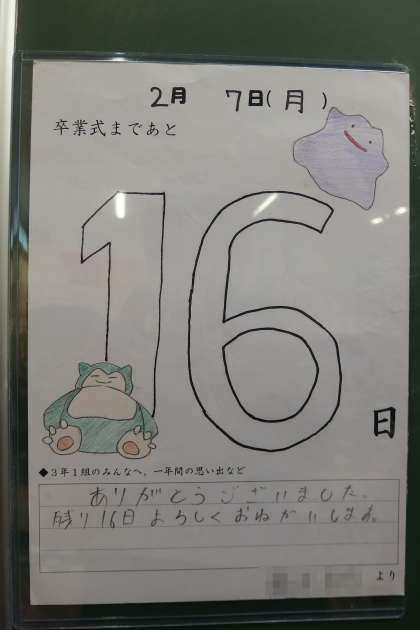 2月 7日(月)
卒業式まであと
16
日
◆3年1組のみんなへ、一年間の思い出など
ありがとうございました。
残り16日よろしくおねがいします。
より